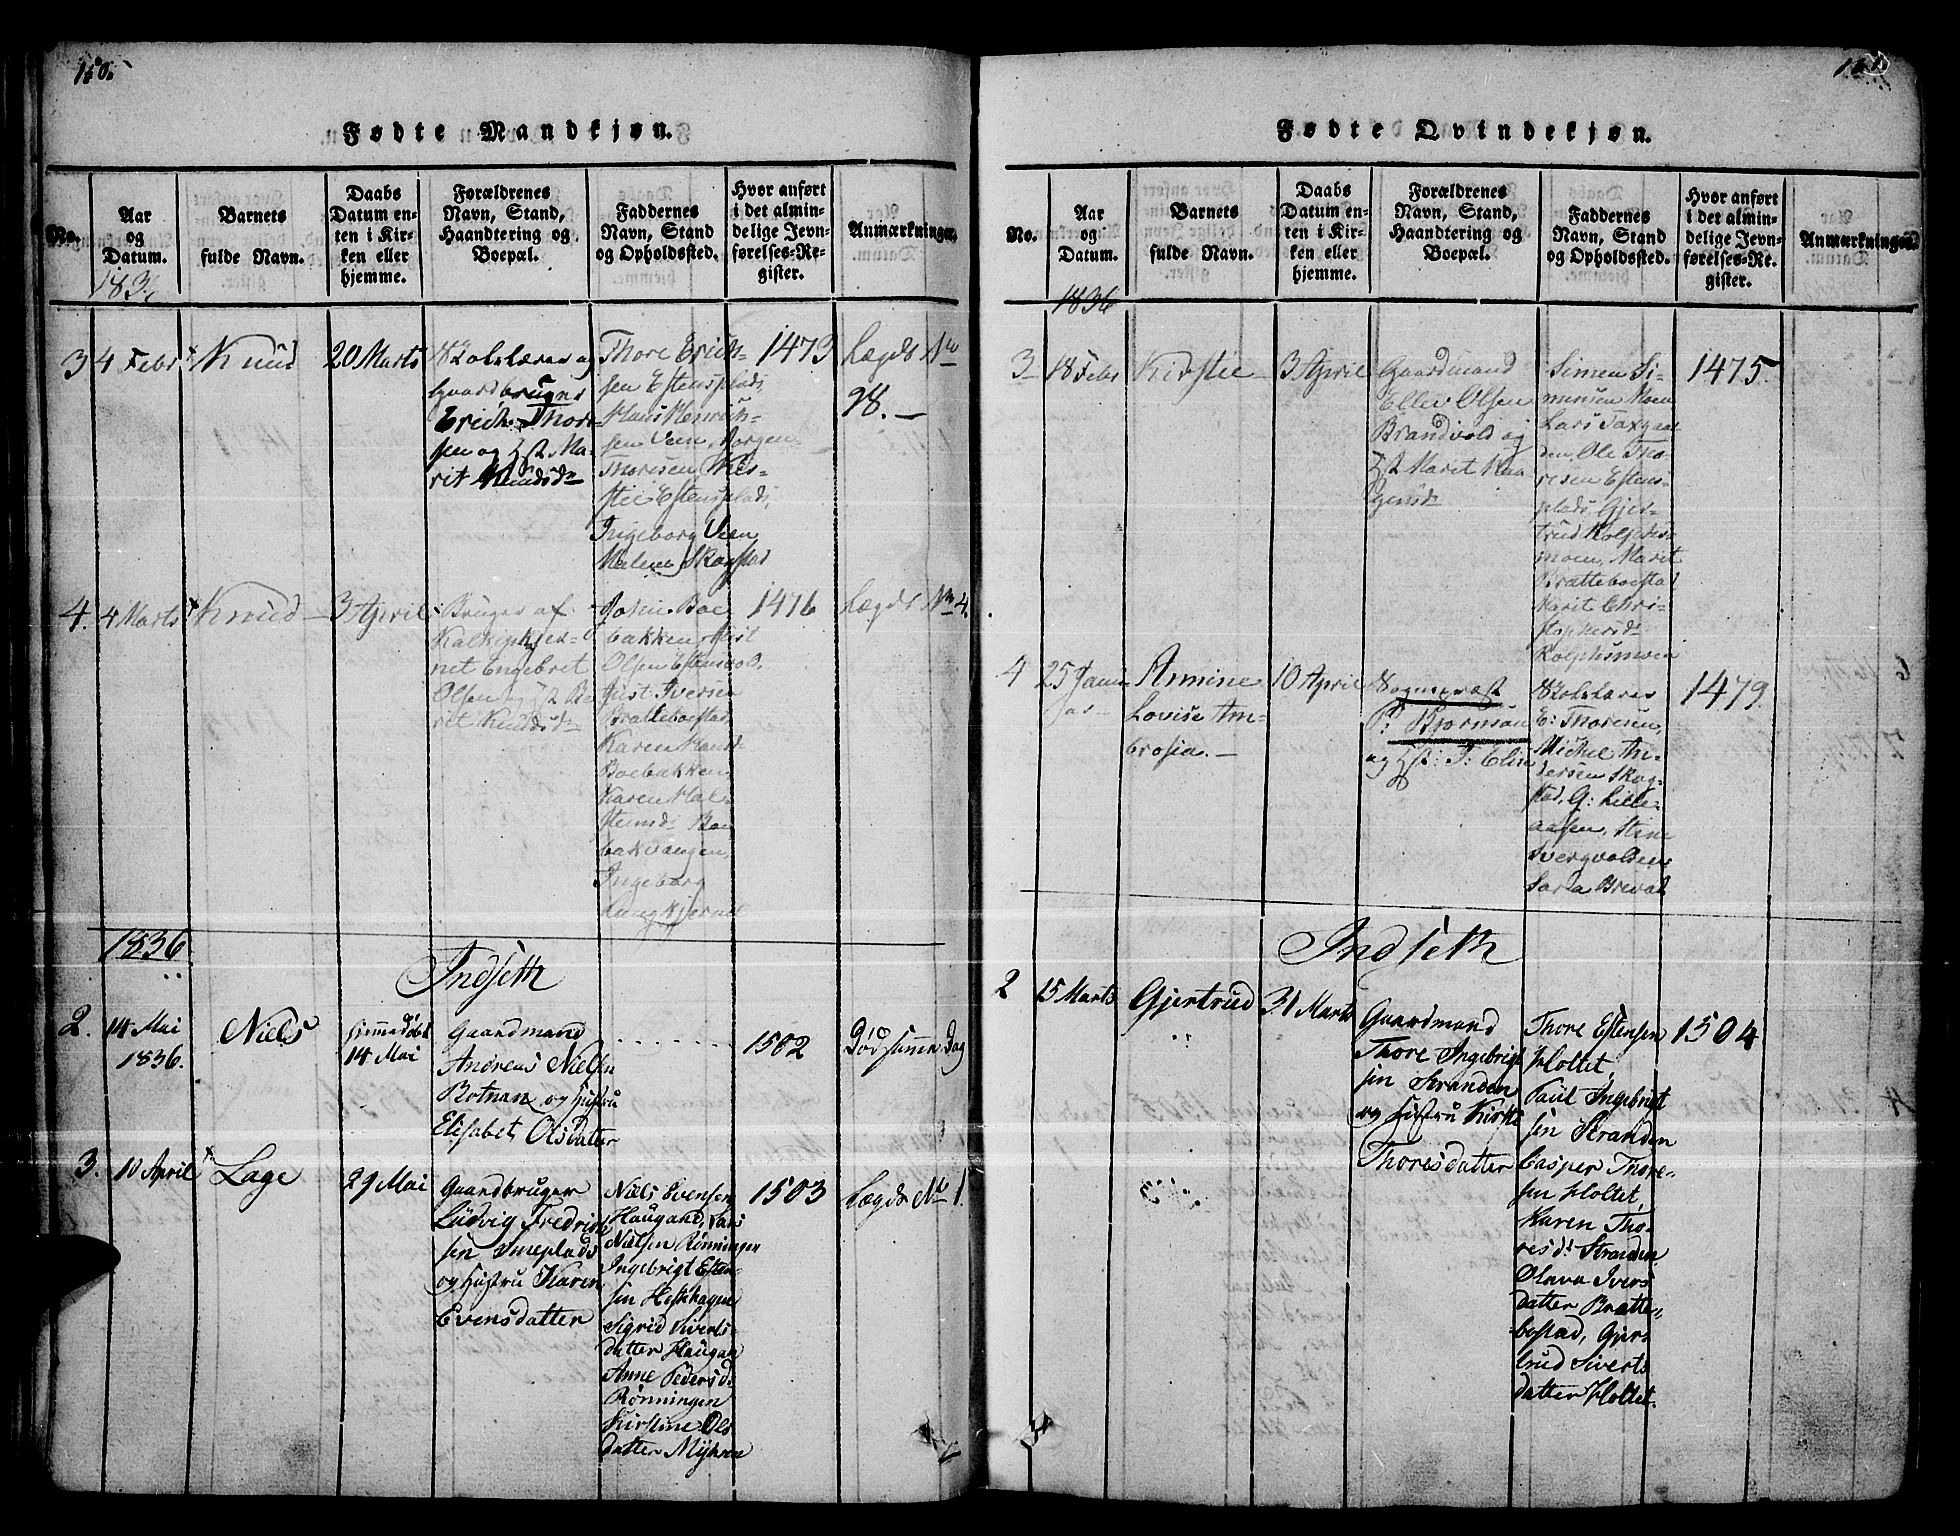 150.
Fødte Mandkjøn.
No.
Aar
og
Datum.
1836
Barnets
fulde Navn.
Daabs
Datum en-
ten i Kir-
ken eller
hjemme.
Forældrenes
Navn, Stand,
Haandtering og
Boepæl.
Faddernes
Navn, Stand
og Opholdssted.
Hvor anført
i det almin-
delige Jevn-
førelses-Re-
gister.
Anmærkninger.
3
4 Febr
Knud
20 Marts
Skolelærer og
Gaardbruger
Erich Thore-
sen og Hst Ma-
rit Knudsd
Thore Erich-
sen Estensplads
Hans Henrich-
sen Veen, Jørgen
Thoresen Kir-
stie Estensplads,
Ingeborg Veen
Malene Skogstad
1473
Lægds No
28. –
4.
4 Marts
Knud –
3 April
Bruger af
Kalkipkjer-
net Engebret
Olsen og Hst Be-
rit Knudsd
John Boe-
bakken, Just
Olsen Estensvold.
Just Iversen
Bratteboestad,
Karen Hansd
Boebakken,
Karen Hal-
stensd Boe
bakvangen,
Ingeborg
Langkjernet
1476
Lægds No 4.
1836
Indseth
2.
14 Mai
1836.
Niels
hjemmedøbt
14 Mai
Gaardmand
Andreas Nielsen
Rotnan og Hustru
Elisabet Olsdatter
. . . . . . .
1502
Død samme Dag
3.
10 April
Lage
29 Mai
Gaardbruger
Ludvig Fredrik
sen Smeplads
og Hustru Karen
Evensdatter
Niels Evensen
Haugand, Lars
Nielsen Rønningen
Ingebrigt Esten-
sen Hestehagen
Sigrid Siverts-
datter Haugan
Anne Pedersd.
Rønningen
Kirstine Ols
datter Myhren
1503
Lægds No 1.
151.
Fødte Qvindekjøn.
No.
Aar
og
Datum.
1836
Barnets
fulde Navn.
Daabs
Datum en-
ten i Kir-
ken eller
hjemme.
Forældrenes
Navn, Stand,
Haandtering og
Boepæl.
Faddernes
Navn, Stand
og Opholdssted.
Hvor anført
i det almin-
delige Jevn-
førelses-Re-
gister.
Anmærkninger.
3
18 Febr
Kirstie –
3 April
Gaardmand
Ellev Olsen
Brandvold og
Hst Marit Maa-
gensd
Simen Si-
mensen Moen
Lars Taxgaar
den, Ole Tho-
resen Estens-
plads Gjer-
trud Rolphs-
moen, Marit
Bratteboestad
Marit Chri-
stophersd
Rolphsmoen
1475.
4
25 Janu
ar –
Armine
Lovise Am-
brosia. –
10 April
Sognepræst
P: Bjørnsøn
og Hst: J: Elise
Skolelærer
E: Thoresen,
Michel An-
dersen Skog-
stad, G: Lille-
aasen, Stine
Svergvolden
Sara Brevad
1479.
Indseth
2
15 Marts
Gjertrud
31 Marts
Gaardmand
Thore Ingebrigt
sen Stranden
og Hustru Kirsti
Thoresdatter
Thore Estensen
Holtet,
Paul Ingebrigt
sen Stranden
Casper Thore-
sen Holtet
Karen Tho-
resd. Stranden
Olava Ivers
datter Bratte-
bostad, Gjer-
trud Siverts
datter Holtet.
1504